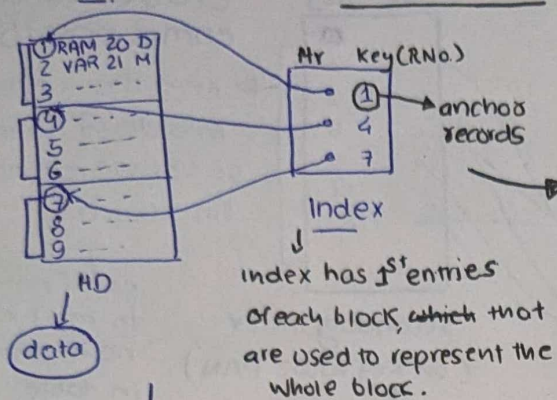 1 RAM 20 D
2 VAR 21 M
3 - - - - -
4 - - - -
5 - - -
6 - - -
7 - - - -
8 - - -
9 - - -
HD
data
Key(RNo.)
1
4
7
anchor
records
Index
index has 1st entries
of each block, which that
are used to represent the
whole block.